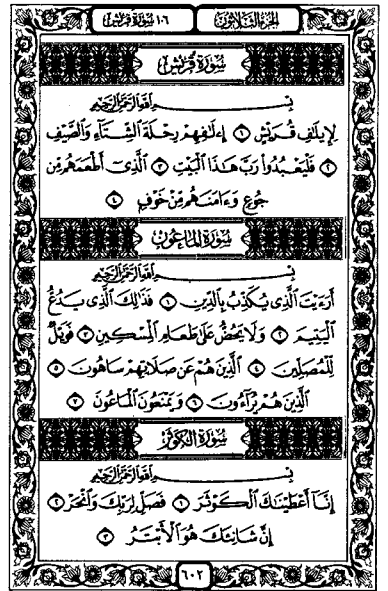 الجزء الثلاثون ١٠٦ سورة قريش
سورة قريش
بسم الله الرحمن الرحيم
لِإِيلَٰفِ قُرَيْشٍ ١ إِۦلَٰفِهِمْ رِحْلَةَ ٱلشِّتَآءِ وَٱلصَّيْفِ
٢ فَلْيَعْبُدُوا۟ رَبَّ هَٰذَا ٱلْبَيْتِ ٣ ٱلَّذِىٓ أَطْعَمَهُم مِّن
جُوعٍ وَءَامَنَهُم مِّنْ خَوْفٍۭ ٤
سورة الماعون
بسم الله الرحمن الرحيم
أَرَءَيْتَ ٱلَّذِى يُكَذِّبُ بِٱلدِّينِ ١ فَذَٰلِكَ ٱلَّذِى يَدُعُّ
ٱلْيَتِيمَ ٢ وَلَا يَحُضُّ عَلَىٰ طَعَامِ ٱلْمِسْكِينِ ٣ فَوَيْلٌ
لِّلْمُصَلِّينَ ٤ ٱلَّذِينَ هُمْ عَن صَلَاتِهِمْ سَاهُونَ ٥
ٱلَّذِينَ هُمْ يُرَآءُونَ ٦ وَيَمْنَعُونَ ٱلْمَاعُونَ ٧
سورة الكوثر
بسم الله الرحمن الرحيم
إِنَّآ أَعْطَيْنَٰكَ ٱلْكَوْثَرَ ١ فَصَلِّ لِرَبِّكَ وَٱنْحَرْ ٢
إِنَّ شَانِئَكَ هُوَ ٱلْأَبْتَرُ ٣
٦٠٢